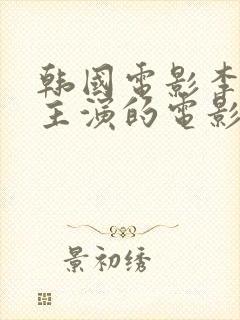 韩國電影李
主演的電影
景初绣